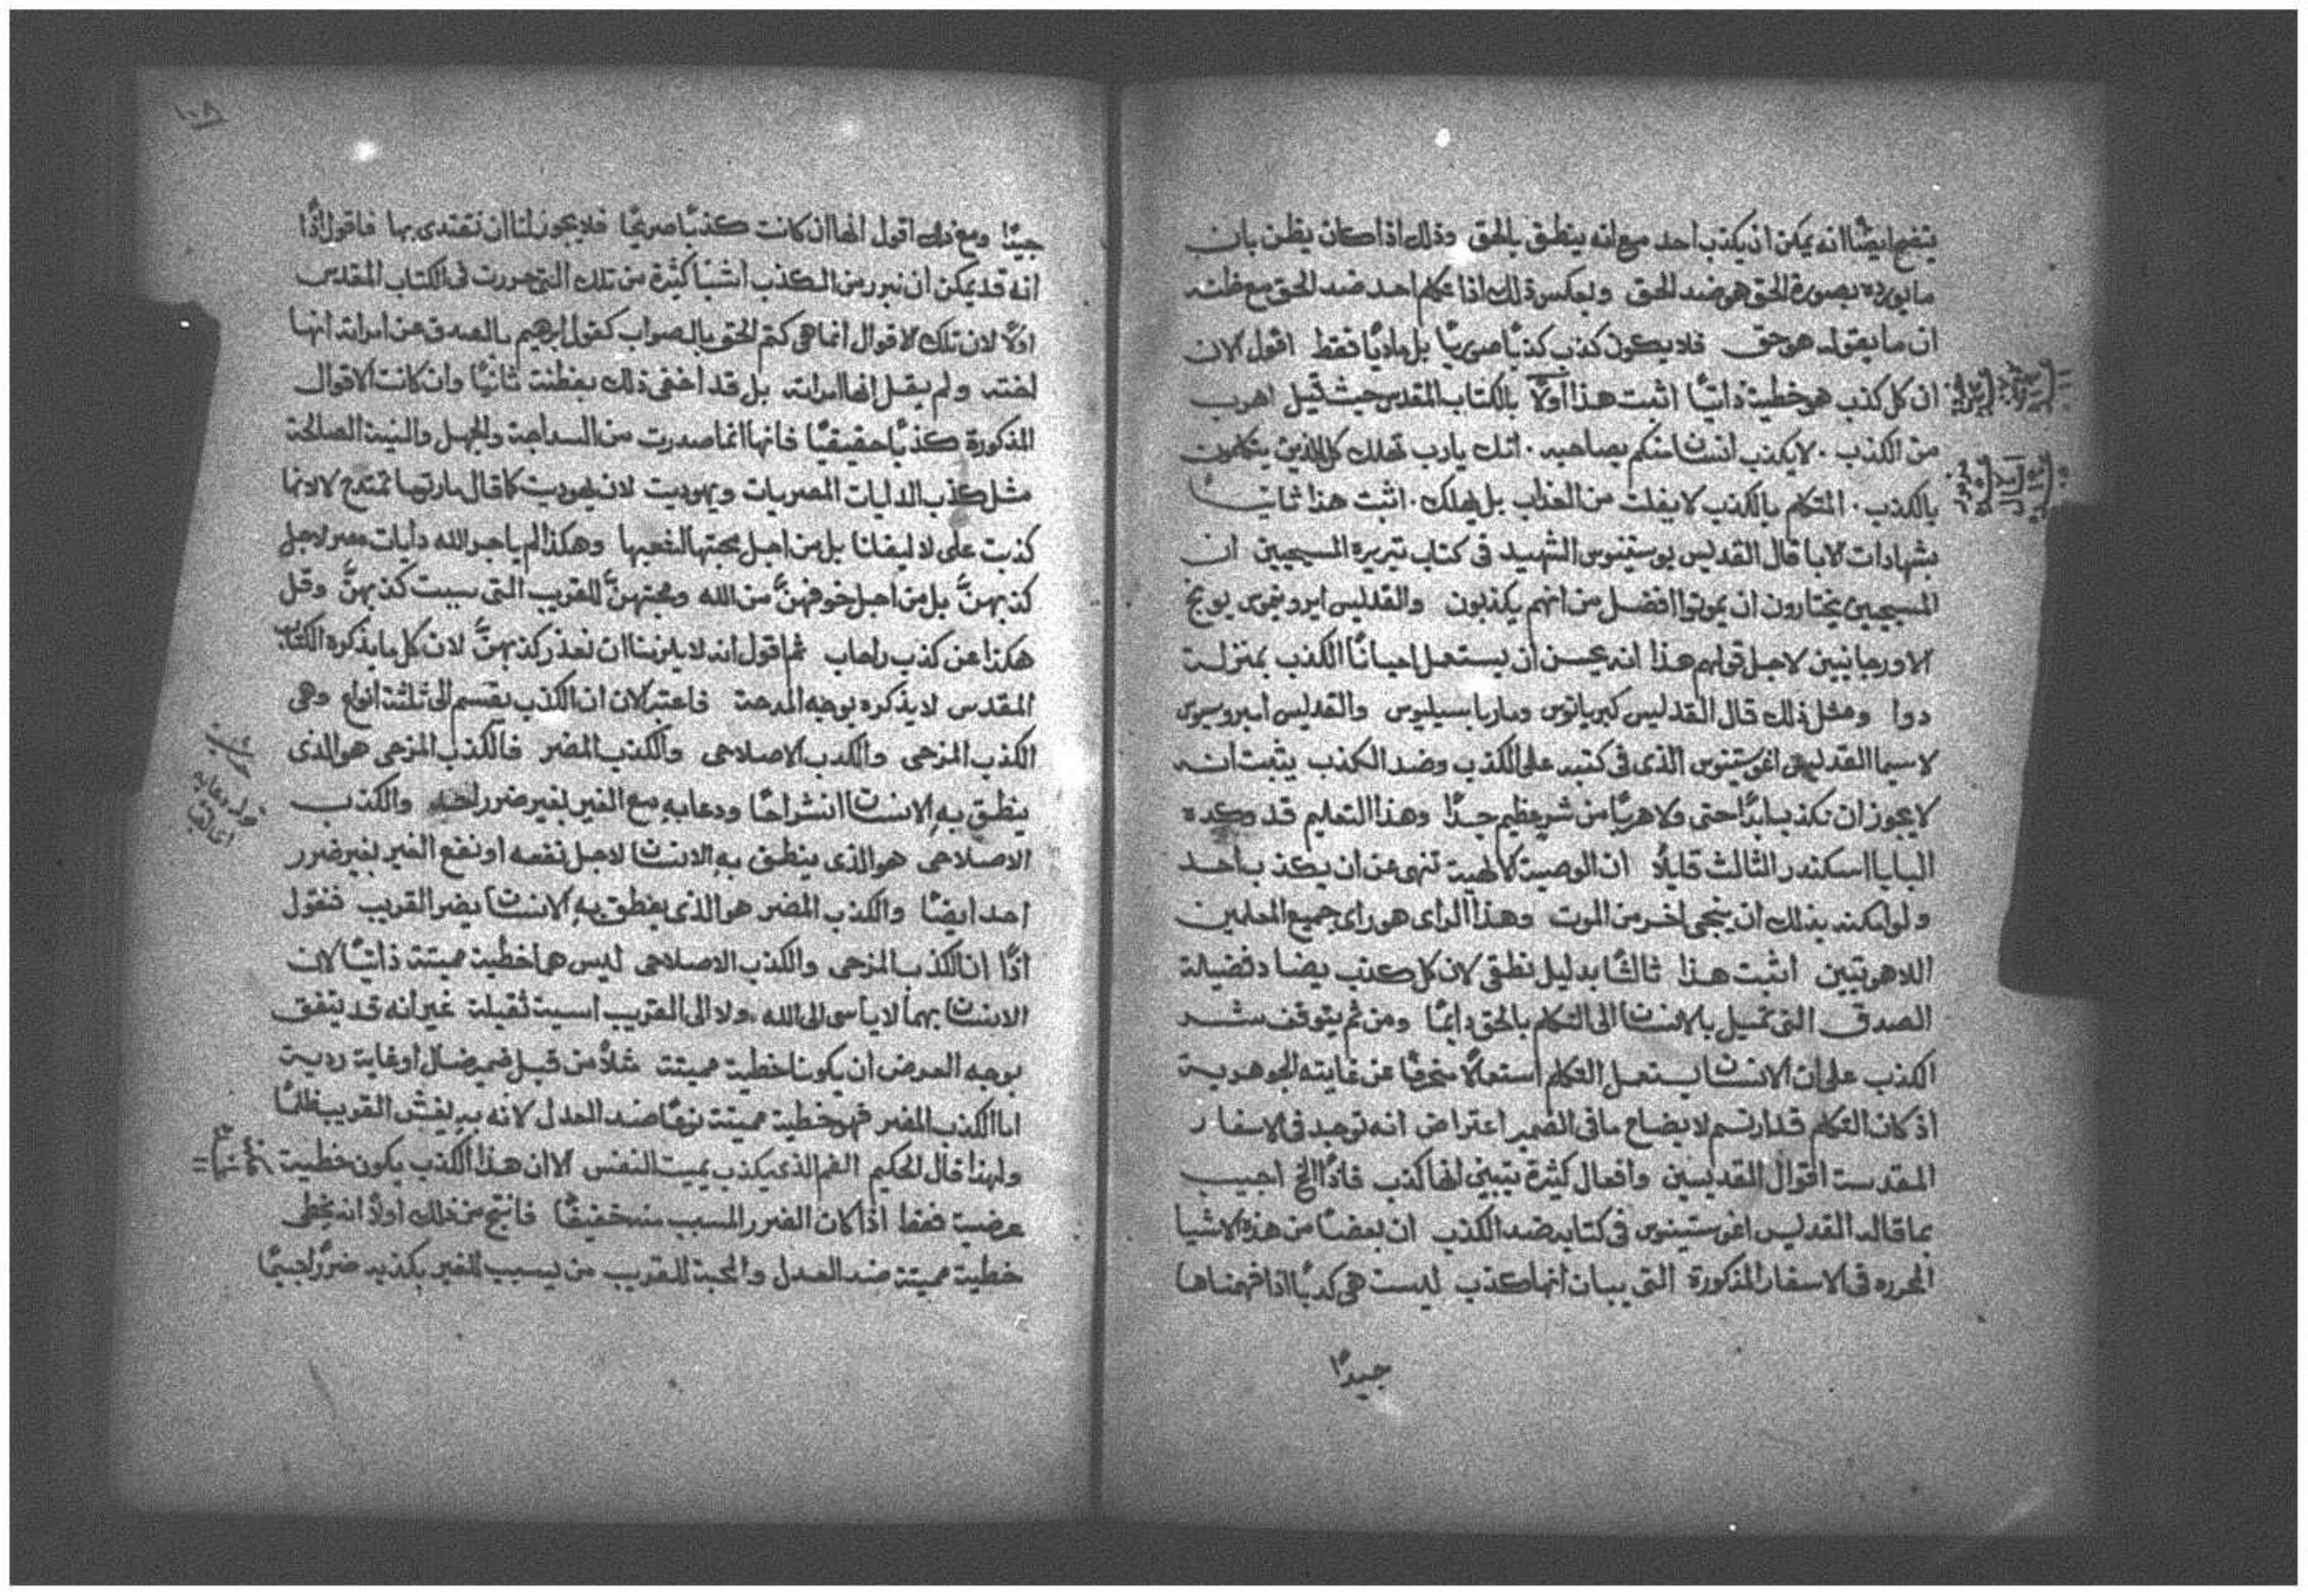 يتضح ايضًا انه يمكن ان يكذب احد مع انه ينطق بالحق وذلك اذا كان يظن بان
ما يورده بصورة الحق هو ضد الحق وبعكس ذلك اذا تكلم احد ضد الحق مع ظنه
ان ما يقوله هو حق فلا يكون كذب كذبًا صوريًا بل ماديًا فقط اقول الان
ان كل كذب هو خطية ذاتيًا اثبت هذا اولًا بالكتاب المقدس حيث قيل اهرب
من الكذب . لا يكذب انسان منكم بصاحبه . انك يارب تهلك كل الذين يتكلمون
بالكذب . المتكلم بالكذب لا يفلت من العذاب بل يهلك . اثبت هذا ثانيًا
بشهادات الابا قال القديس يوستينوس الشهيد في كتاب تبريره المسيحيين ان
المسيحيين يختارون ان يموتوا افضل من انهم يكذبون والقديس ايرونيموس يوبخ
الاورجانيين لاجل قولهم هذا انه يحسن ان يستعمل احيانًا الكذب بمنزلة
دوا ومثل ذلك قال القديس كبريانوس ومار باسيليوس والقديس امبروسيوس
لاسيما القديس اغوستينوس الذي في كتبه على الكذب وضد الكذب يثبت انه
لا يجوز ان نكذب ابدًا حتى ولا هربًا من شر عظيم جدًا وهذا التعليم قد وكده
البابا اسكندر الثالث قايلًا ان الوصية الالهية تنهى عن ان يكذب احد
ولو امكنه بذلك ان ينجي اخر من الموت وهذا الراى هو راى جميع المعلمين
اللاهوتيين اثبت هذا ثالثًا بدليل نطقي لان كل كذب يضاد فضيلة
الصدق التي تميل بالانسان الى التكلم بالحق دايمًا ومن ثم يتوقف شر
الكذب على ان الانسان يستعمل التكلم استعمالًا منحرفًا عن غايته الجوهرية
اذ كان التكلم قد ارتسم لايضاح ما في الضمير اعتراض انه توجد في الاسفار
المقدسة اقوال القديسين وافعال كثيرة يتبين انها كذب فاذًا الخ اجيب
بما قاله القديس اغوستينوس في كتابه ضد الكذب ان بعضًا من هذه الاشيا
المحرره في الاسفار المذكورة التي يبان انها كذب ليست هي كذبًا اذا فهمناها
جيدًا
جيدًا ومع ذلك اقول انها ان كانت كذبًا صريحًا فلا يجوز لنا ان نقتدى بها فاقول اذًا
انه قد يمكن ان نبرر من الكذب اشيا كثيرة من تلك التي حررت في الكتاب المقدس
اولًا لان تلك الاقوال انما هي كتم الحق بالصواب كقول ابرهيم بالصدق عن امراته انها
اخته ولم يقل انها امراته بل قد اخفى ذلك بفطنة ثانيًا وان كانت الاقوال
المذكورة كذبًا حقيقيًا فانها انما صدرت من السداجة والجهل والنية الصالحة
مثل كذب الدايات المصريات ويهوديت لان يهوديت كما قال مار توما تمتدح لا لانها
كذبت على اليفانا بل من اجل محبتها لشعبها وهكذا لم ياجر الله دايات مصر لاجل
كذبهنَّ بل من اجل خوفهنَّ من الله ومحبتهنَّ للقريب التي سببت كذبهنَّ وقل
هكذا عن كذب راحاب ثم اقول انه لا يلزمنا ان نعذر كذبهنَّ لان كل ما يذكره الكتاب
المقدس لا يذكره بوجه المدحة فاعتبر الان ان الكذب يقسم الى ثلثة انواع وهي
الكذب المزحى والكذب الاصلاحى والكذب المضر فالكذب المزحى هو الذى
ينطق به الانسان انشراحًا ودعابه مع الغير بغير ضرر احد والكذب
الاصلاحى هو الذى ينطق به الانسان لاجل نفعه او نفع الغير بغير ضرر
احد ايضًا والكذب المضر هو الذى ينطق به الانسان ليضر القريب فنقول
اذًا ان الكذب المزحى والكذب الاصلاحى ليس هما خطية مميتة ذاتيًا لان
الانسان بهما لا ياسى الى الله ولا الى القريب اسية ثقيلة غير انه قد يتفق
بوجه العرض ان يكونا خطية مميتة مثلًا من قبل ضمير ضال او غاية ردية
اما الكذب المضر فهو خطية مميتة نوعًا ضد العدل لانه به يغش القريب ظلمًا
ولهذا قال الحكيم الفم الذى يكذب يميت النفس الا ان هذا الكذب يكون خطية
عرضية فقط اذا كان الضرر المسبب منه خفيفًا فانتج من ذلك اولًا انه يخطى
خطية مميتة ضد العدل والمحبة للقريب من يسبب للغير بكذبه ضررًا جسيمًا